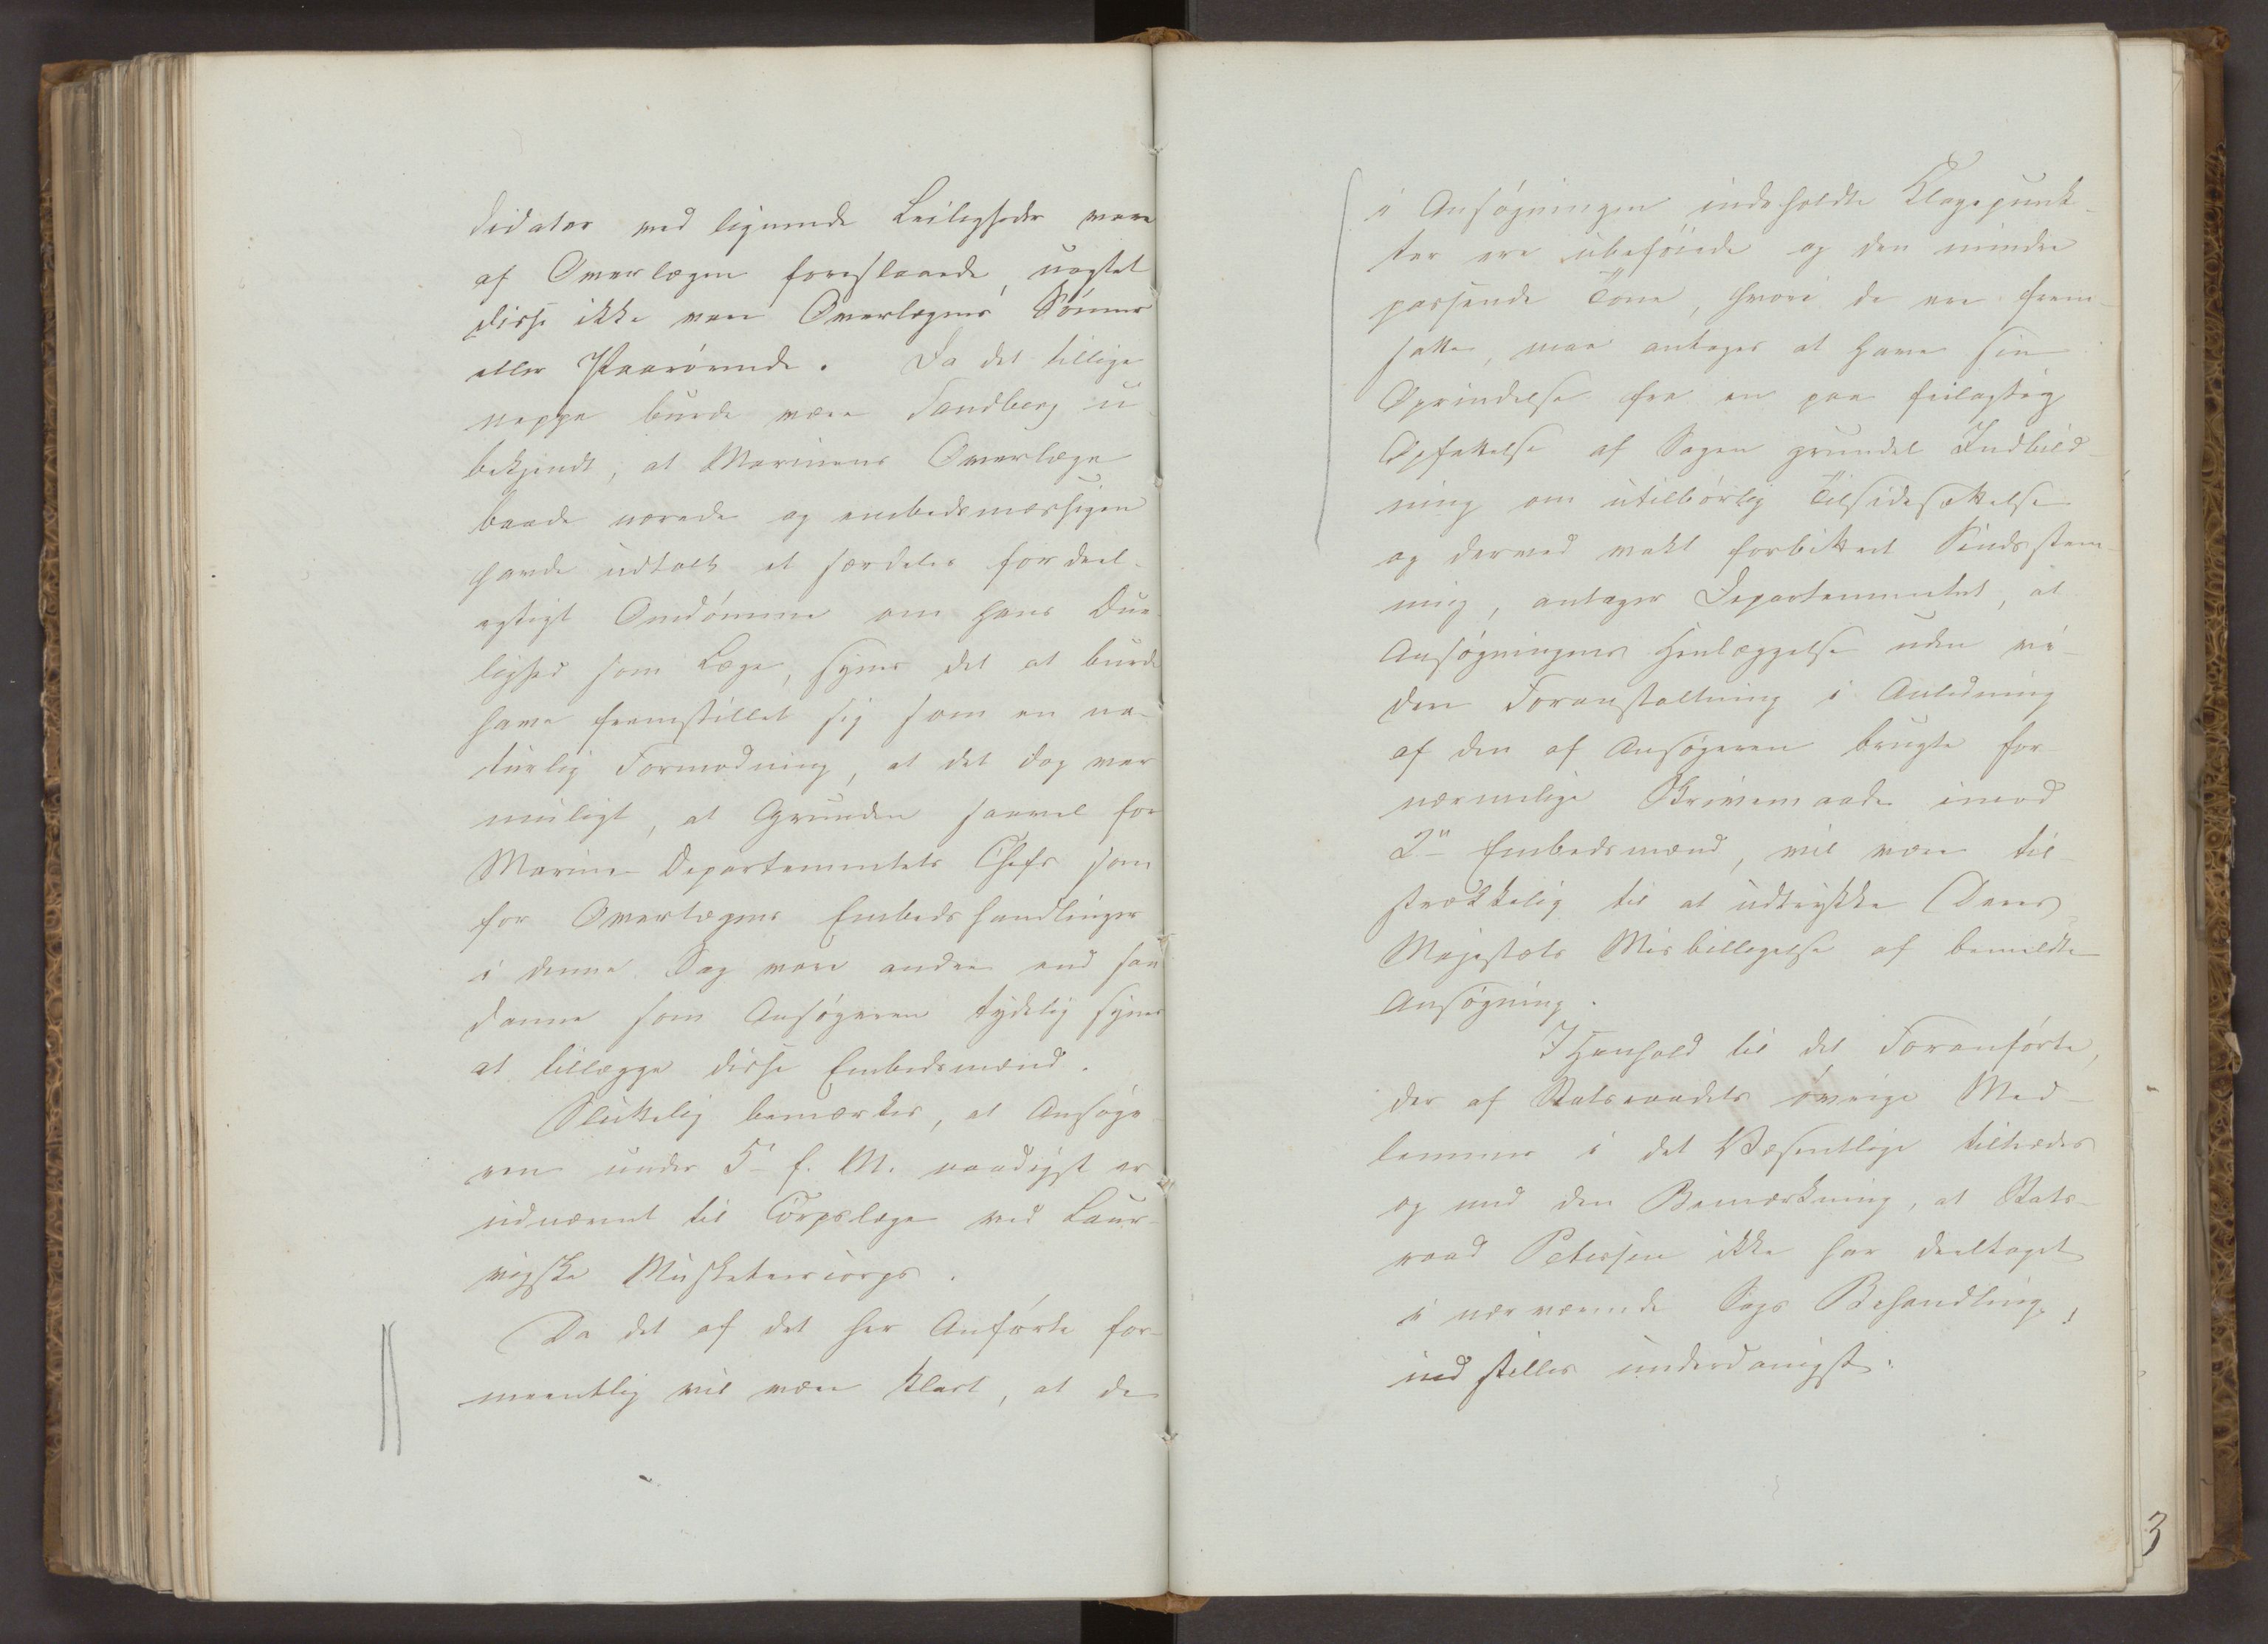 didater ved lignende Leiligheder vare
af Overlægen foreslaaede, uagtet
disse ikke vare Overlægens Sønner
eller Paarørende. Da det tillige
neppe burde være Sandberg u-
bekjendt, at Marinens Overlæge
baade nærede og embedsmæssigen
havde udtalt et særdeles fordeel-
agtigt Omdømme om hans Due-
lighed som Læge, synes det at burde
have fremstillet sig som en na-
turlig Formodning, at det dog var
muligt, at Grunden saavel for
Marine-Departementets Chefs som
for Overlægens Embedshandlinger
i denne Sag vare andre end saa-
danne som Ansøgeren tydelig synes
at tillægge disse Embedsmænd.
Sluttelig bemærkes, at Ansøge-
ren under 5 f. M. naadigst er
udnævnt til Corpslæge ved Laur-
vigske Musketeercorps.
Da det af det her Anførte for-
meentlig vil være klart, at de
i Ansøgningen indeholdte Klagepunk-
ter ere ubeføiede og den mindre
passende Tone, hvori de ere frem-
satte, maa antages at have sin
Oprindelse fra en paa feilagtig
Opfattelse af Sagen grundet Indbild-
ning om utilbørlig Tilsidesættelse
og derved vakt forbittret Sindsstem-
ning, antager Departementet, at
Ansøgningens Henlæggelse uden vi-
dere Foranstaltning i Anledning
af den af Ansøgeren brugte for-
nærmelige Skrivemaade imod
2 Embedsmænd, vil være til-
strækkelig til at udtrykke Deres
Majestæts Misbilligelse af bemeldte
Ansøgning.
I Henhold til det Foranførte,
der af Statsraadets øvrige Med-
lemmer i det Væsentlige tiltrædes
og med den Bemærkning, at Stats-
raad Petersen ikke har deeltaget
i nærværende Sags Behandling,
indstilles underdanigst:
3